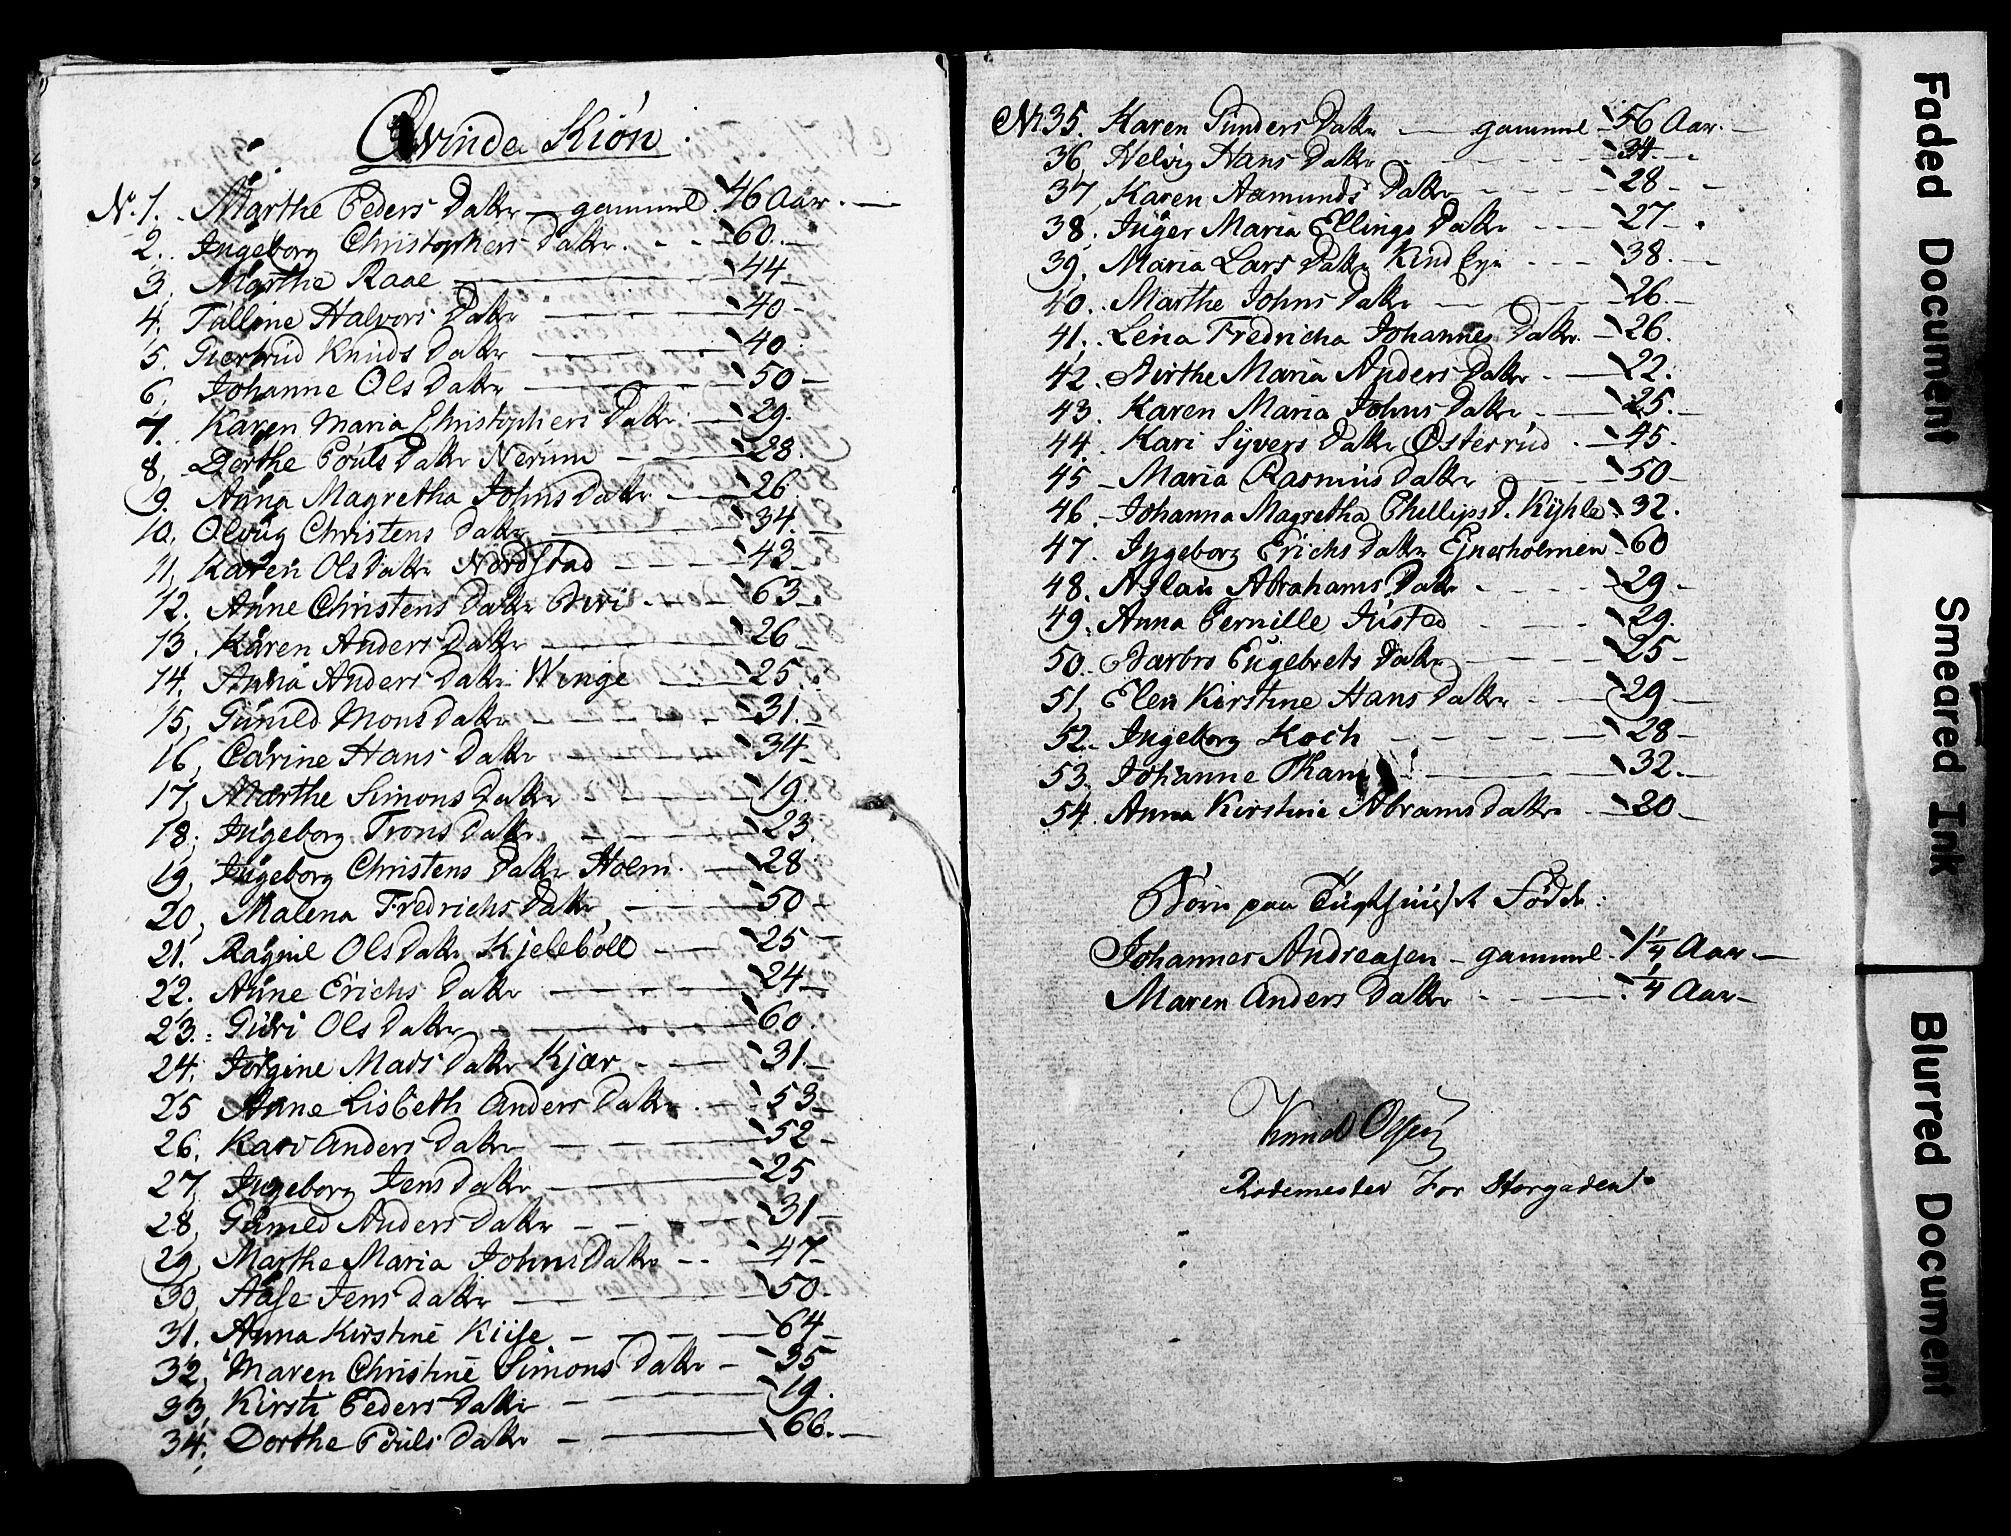 Qvinde Kiön
N. 1. Marthe Peders Datter gammel 46 Aar.
2. Ingeborg Christophers Datter 60
3. Marthe Raae 44
4. Tulline Halvors Datter 40
5. Giertrud Knuds Datter 40
6. Johanne Ols Datter 50
7. Karen Maria Christophers Datter 29
8. Dorthe Pouls Datter Nerum 28
9. Anna Magretha Johns Datter 26
10. Olvug Christens Datter 34
11. Karen Ols Datter Nordstad 43
12. Anne Christens Datter 63
13. Karen Anders Datter 26
14. Anna Anders Datter Winge 25
15. Gunild Mons Datter 31
16. Carine Hans Datter 34
17. Marthe Simons Datter 19
18. Ingeborg Trons Datter 23
19. Ingeborg Christens Datter Holm 28
20. Malena Fredrichs Datter 50
21. Ragnil Ols Datter Kjeleböll 25
22. Anne Erichs Datter 24
23. Guri Ols Datter 60
24. Jörgine Mads Datter Kjær 31
25. Anne Lisbeth Anders Datter 53
26. Kari Anders Datter 52
27. Ingeborg Jens Datter 25
28. Gunild Anders Datter 31
29. Marthe Maria Johns Datter 47
30. Aase Jens Datter 50
31. Anna Kirstine Kiise 64
32. Maren Christine Simons Datter 35
33. Kirsti Peders Datter 19
34. Dorthe Pouls Datter 66
N 35. Karen Gunders Datter gammel 56 Aar
36. Helvig Hans Datter 34
37. Karen Aamunds Datter 28
38. Inger Maria Ellings Datter 27
39. Maria Lars Datter Kind Eye 38
40. Marthe Johns Datter 26
41. Lena Fredricha Johannes Datter 26
42. Birthe Maria Anders Datter 22
43. Karen Maria Johns Datter 25
44. Kari Syvers Datter Österrud 45
45. Maria Rasmus Datter 50
46. Johanna Magretha Phillips D. Kyhle 32
47. Ingeborg Erichs Datter Ejnerholmen 60
48. Aslau Abrahams Datter 29
49. Anna Pernille Justed 29
50. Barbro Engebrets Datter 25
51. Elen Kirstine Hans Datter 29
52. Ingeborg Koch 28
53. Johanne Tham 32
54. Anna Kirstine Abrams Datter 20
Börn paa Tugthuuset Födde:
Johannes Andreasen gammel 1 1/4 Aar
Maren Anders Datter 1/4 Aar
Knud Olsen
Rodemester for Storgaden
Faded Document
Smeared Ink
Blurred Document